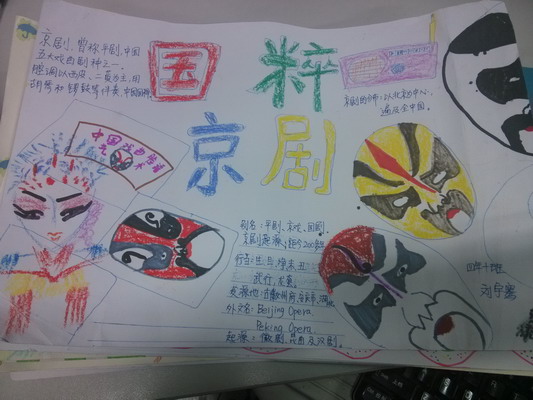 国粹
京剧
京剧,曾称平剧,中国
五大戏曲剧种之一,
腔调以西皮、二黄为主,用
胡琴和锣鼓等伴奏,
中国戏曲
京剧分布:以北京为中心,
遍及全中国。
别名:平剧、京戏、国剧
京剧起源:距今200年
行当:生、旦、净、末、丑
武行、龙套。
外文名:Beijing Opera
Peking Opera
起源:徽剧、昆曲及汉剧。
四年十班